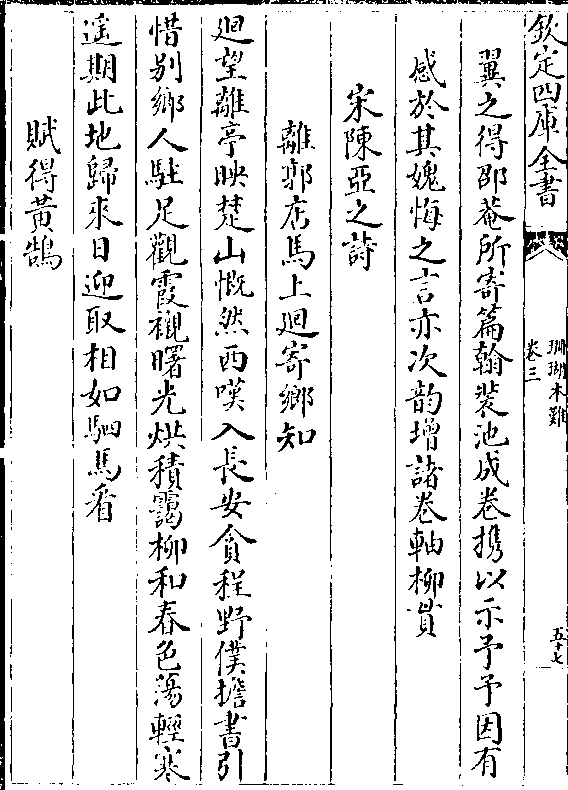 欽定四庫全書
珊瑚木難
卷三
五十七
翼之得邵菴所寄篇翰裝池成卷携以示予予因有
感於其媿悔之言亦次韵增諸卷軸柳貫
宋陳亞之詩
離郭店馬上迴寄鄉知
迴望離亭映楚山慨然西嘆入長安貪程野僕擔書引
惜别鄉人駐足觀霞襯曙光烘積靄柳和春色蕩輕寒
遥期此地歸來日迎取相如駟馬看
賦得黃鵠